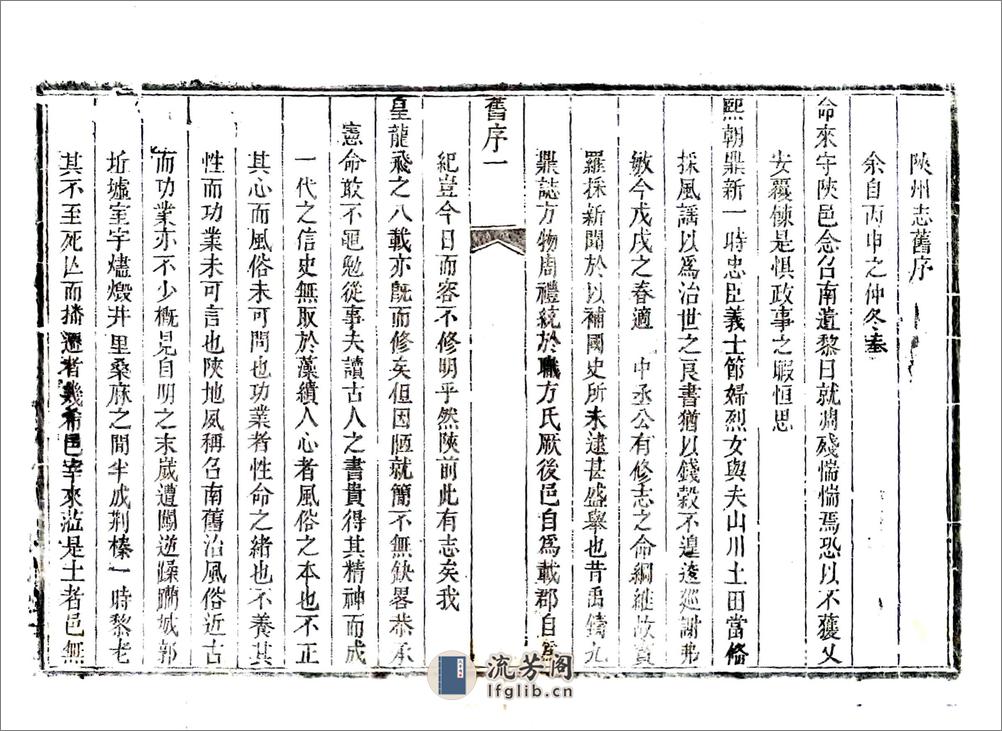 陝州志舊序
余自丙申之仲冬奉
命來守陝邑念召南遺黎日就凋殘惴惴焉恐以不獲乂
安覆餗是懼政事之暇恒思
熙朝鼎新一時忠臣義士節婦烈女與夫山川土田當脩
採風謠以為治世之良書猶以錢穀不遑逡廵謝弗
敏今戊戌之春適 中丞公有修志之命綱維故實
羅採新聞於以補國史所未逮甚盛舉也昔禹鑄九
鼎誌方物周禮統於職方氏厥後邑自為載郡自為
舊序一
紀豈今日而容不修明乎然陝前此有志矣我
皇龍飛之八載亦旣而修矣但因陋就簡不無缺畧恭承
憲命敢不黽勉從事夫讀古人之書貴得其精神而成
一代之信史無取於藻繢人心者風俗之本也不正
其心而風俗未可問也功業者性命之緒也不養其
性而功業未可言也陝地夙稱召南舊治風俗近古
而功業亦不少槪見自明之末歲遭闖逆燥躪城郭
坵墟室宇燼燬井里桑麻之間半成荆榛一時黎老
其不至死亾而播遷者幾希邑宰來涖是土者邑無
流芳阁
lfglib.cn